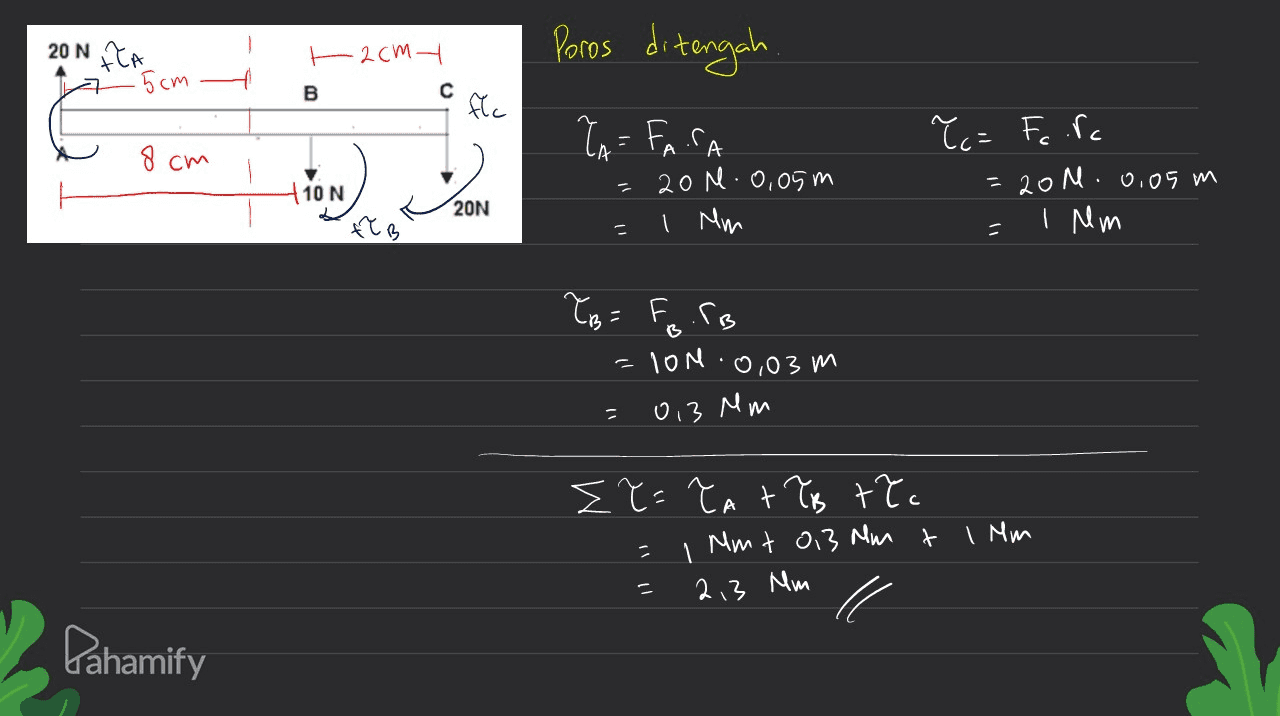 20 N +τA
5 cm
2cm
B
C
+τc
A
8 cm
10 N
+τB
20N
Poros ditengah.
τA = FA.rA
= 20 N . 0,05 m
= 1 Nm
τc = Fc.rc
= 20 N. 0,05 m
= 1 Nm
τB = FB.rB
= 10N . 0,03 m
= 0,3 Nm
Στ = τA + τB + τc
= 1 Nm + 0,3 Nm + 1 Nm
= 2,3 Nm //
Pahamify